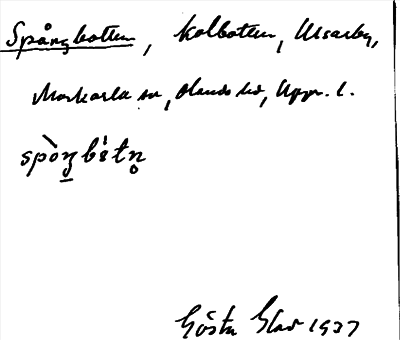 Spångbotten, kolbotten, Ursarby,
Morkarla sn, Olands hd, Uppl. l.
spòŋbétn̥
Gösta Glas 1937